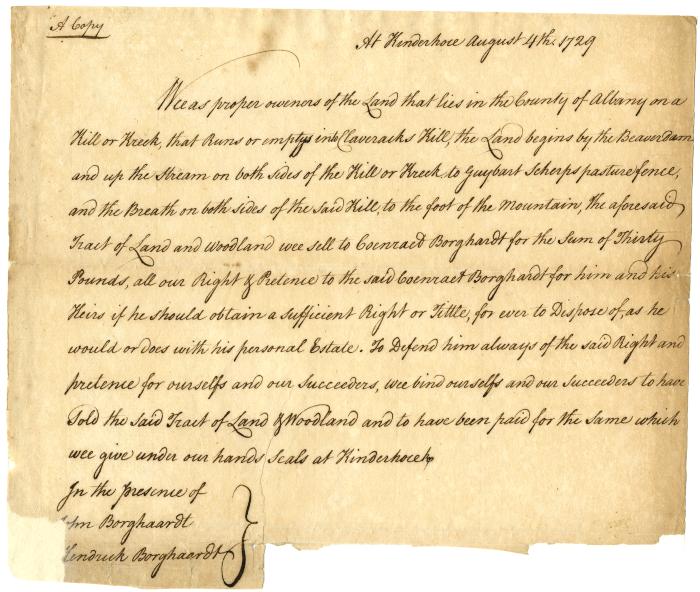 A Copy
At Kinderhoce August 4th. 1729
Wee as proper oweners of the Land that lies in the County of Albany on a
Kill or Kreek, that Runs or emptys into Claveracks Kill, the Land begins by the Beaver Dam
and up the Stream on both sides of the Kill or Kreek to Guybart Scherps pasture fence,
and the Breath on both sides of the said Kill, to the foot of the Mountain, The aforesaid
Tract of Land and Woodland wee sell to Coenraet Borghardt for the Sum of Thirty
Pounds, all our Right & Pretence to the said Coenraet Borghardt for him and his
Heirs if he should obtain a sufficient Right or Tittle, for ever to Dispose of, as he
would or does with his personal Estate. To Defend him always of the said Right and
pretence for ourselfs and our Succeeders, wee bind ourselfs and our Succeeders to have
Sold the said Tract of Land & Woodland and to have been paid for the Same which
wee give under our hands Seals at Kinderhoce
In the Presence of
ohn Borghaardt
Hendrick Borghaardt